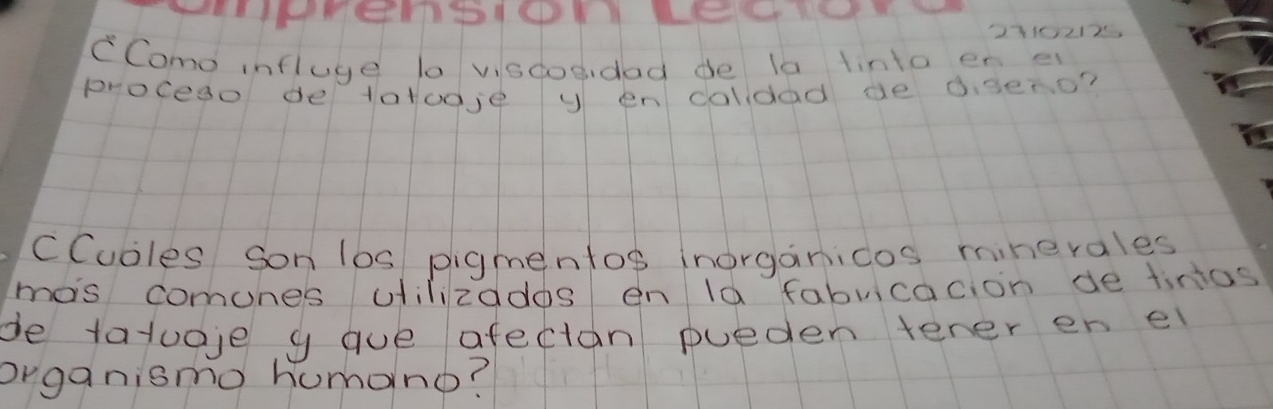 omprensión Lectora
27/02/25
¿Como influye la viscosidad de la tinta en el
proceso de tatuaje y en calidad de diseño?
¿Cuáles son los pigmentos inorgánicos minerales
más comunes utilizados en la fabricación de tintas
de tatuaje y que afectan pueden tener en el
organismo humano?